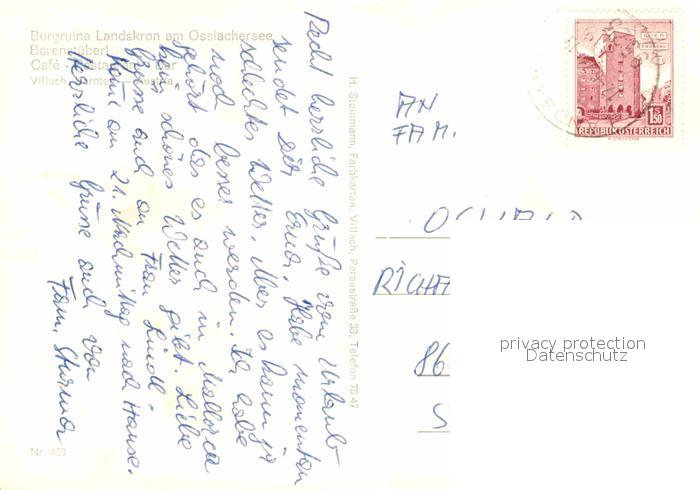 Burgruine Landskron am Ossiachersee
Bärenstüberl
Café - Restaurant - Bar
Villach, Kärnten - Austria
Recht herzliche Grüße vom Urlaub
sendet Dir Erna. Habe momentan
schlechtes Wetter. Aber es kann ja
noch besser werden. Ich habe
gehört das es auch in Mallorca
kein schönes Wetter gibt. Liebe
Grüsse auch an Frau
komme am 21. Nachmittag nach Hause.
Herzliche Grüsse auch von
Fam.
Nr. 403
H. Steinmann, Farbkarten, Villach, Peraustraße 33, Telefon 76 47
REPUBLIK ÖSTERREICH
1.50
AN
FAM.
RICHA
86
S
privacy protection
Datenschutz